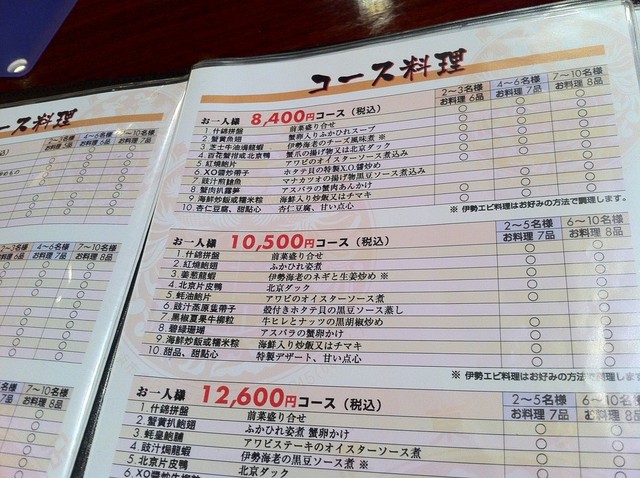 コース料理
お一人様 8,400円コース（税込）
2〜3名様 4〜6名様 7〜10名様
お料理 6品 お料理 7品 お料理 8品
1. 什錦拼盤 前菜盛り合せ
2. 蟹黄魚翅 蟹卵入りふかひれスープ
3. 芝士牛油焗龍蝦 伊勢海老のチーズ風味煮 ※
4. 百花蟹柑或北京鴨 蟹爪の揚げ物又は北京ダック
5. 紅燒鮑片 アワビのオイスターソース煮込み
6. XO醤炒帯子 ホタテ貝の特製X.O.醤炒め
7. 豉汁煎鯧魚 マナカツオの揚げ物黒豆ソース煮込み
8. 蟹肉扒露笋 アスパラの蟹肉あんかけ
9. 海鮮炒飯或糯米粽 海鮮入り炒飯又はチマキ
10. 杏仁豆腐、甜點心 杏仁豆腐、甘い点心
※ 伊勢エビ料理はお好みの方法で調理します。
お一人様 10,500円コース（税込）
2〜5名様 6〜10名様
お料理 7品 お料理 8品
1. 什錦拼盤 前菜盛り合せ
2. 紅燒鮑翅 ふかひれ姿煮
3. 姜葱龍蝦 伊勢海老のネギと生姜炒め ※
4. 北京片皮鴨 北京ダック
5. 蚝油鮑片 アワビのオイスターソース煮
6. 豉汁蒸原韮帯子 殻付きホタテ貝の黒豆ソース蒸し
7. 黒椒夏果牛柳粒 牛ヒレとナッツの黒胡椒炒め
8. 碧綠珊瑚 アスパラの蟹卵かけ
9. 海鮮炒飯或糯米粽 海鮮入り炒飯又はチマキ
10. 甜品、甜點心 特製デザート、甘い点心
※ 伊勢エビ料理はお好みの方法で調理します
お一人様 12,600円コース（税込）
2〜5名様 6〜10名様
お料理 7品 お料理 8品
1. 什錦拼盤 前菜盛り合せ
2. 蟹黄扒鮑翅 ふかひれ姿煮 蟹卵かけ
3. 蚝皇鮑脯 アワビステーキのオイスターソース煮
4. 豉汁焗龍蝦 伊勢海老の黒豆ソース煮 ※
5. 北京片皮鴨 北京ダック
ース料理
4〜6名様 7〜10名様
お料理 7品 お料理 8品
2〜3名様 4〜6名様 7〜10名様
お料理 6品 お料理 7品 お料理 8品
7〜10名様
お料理 8品